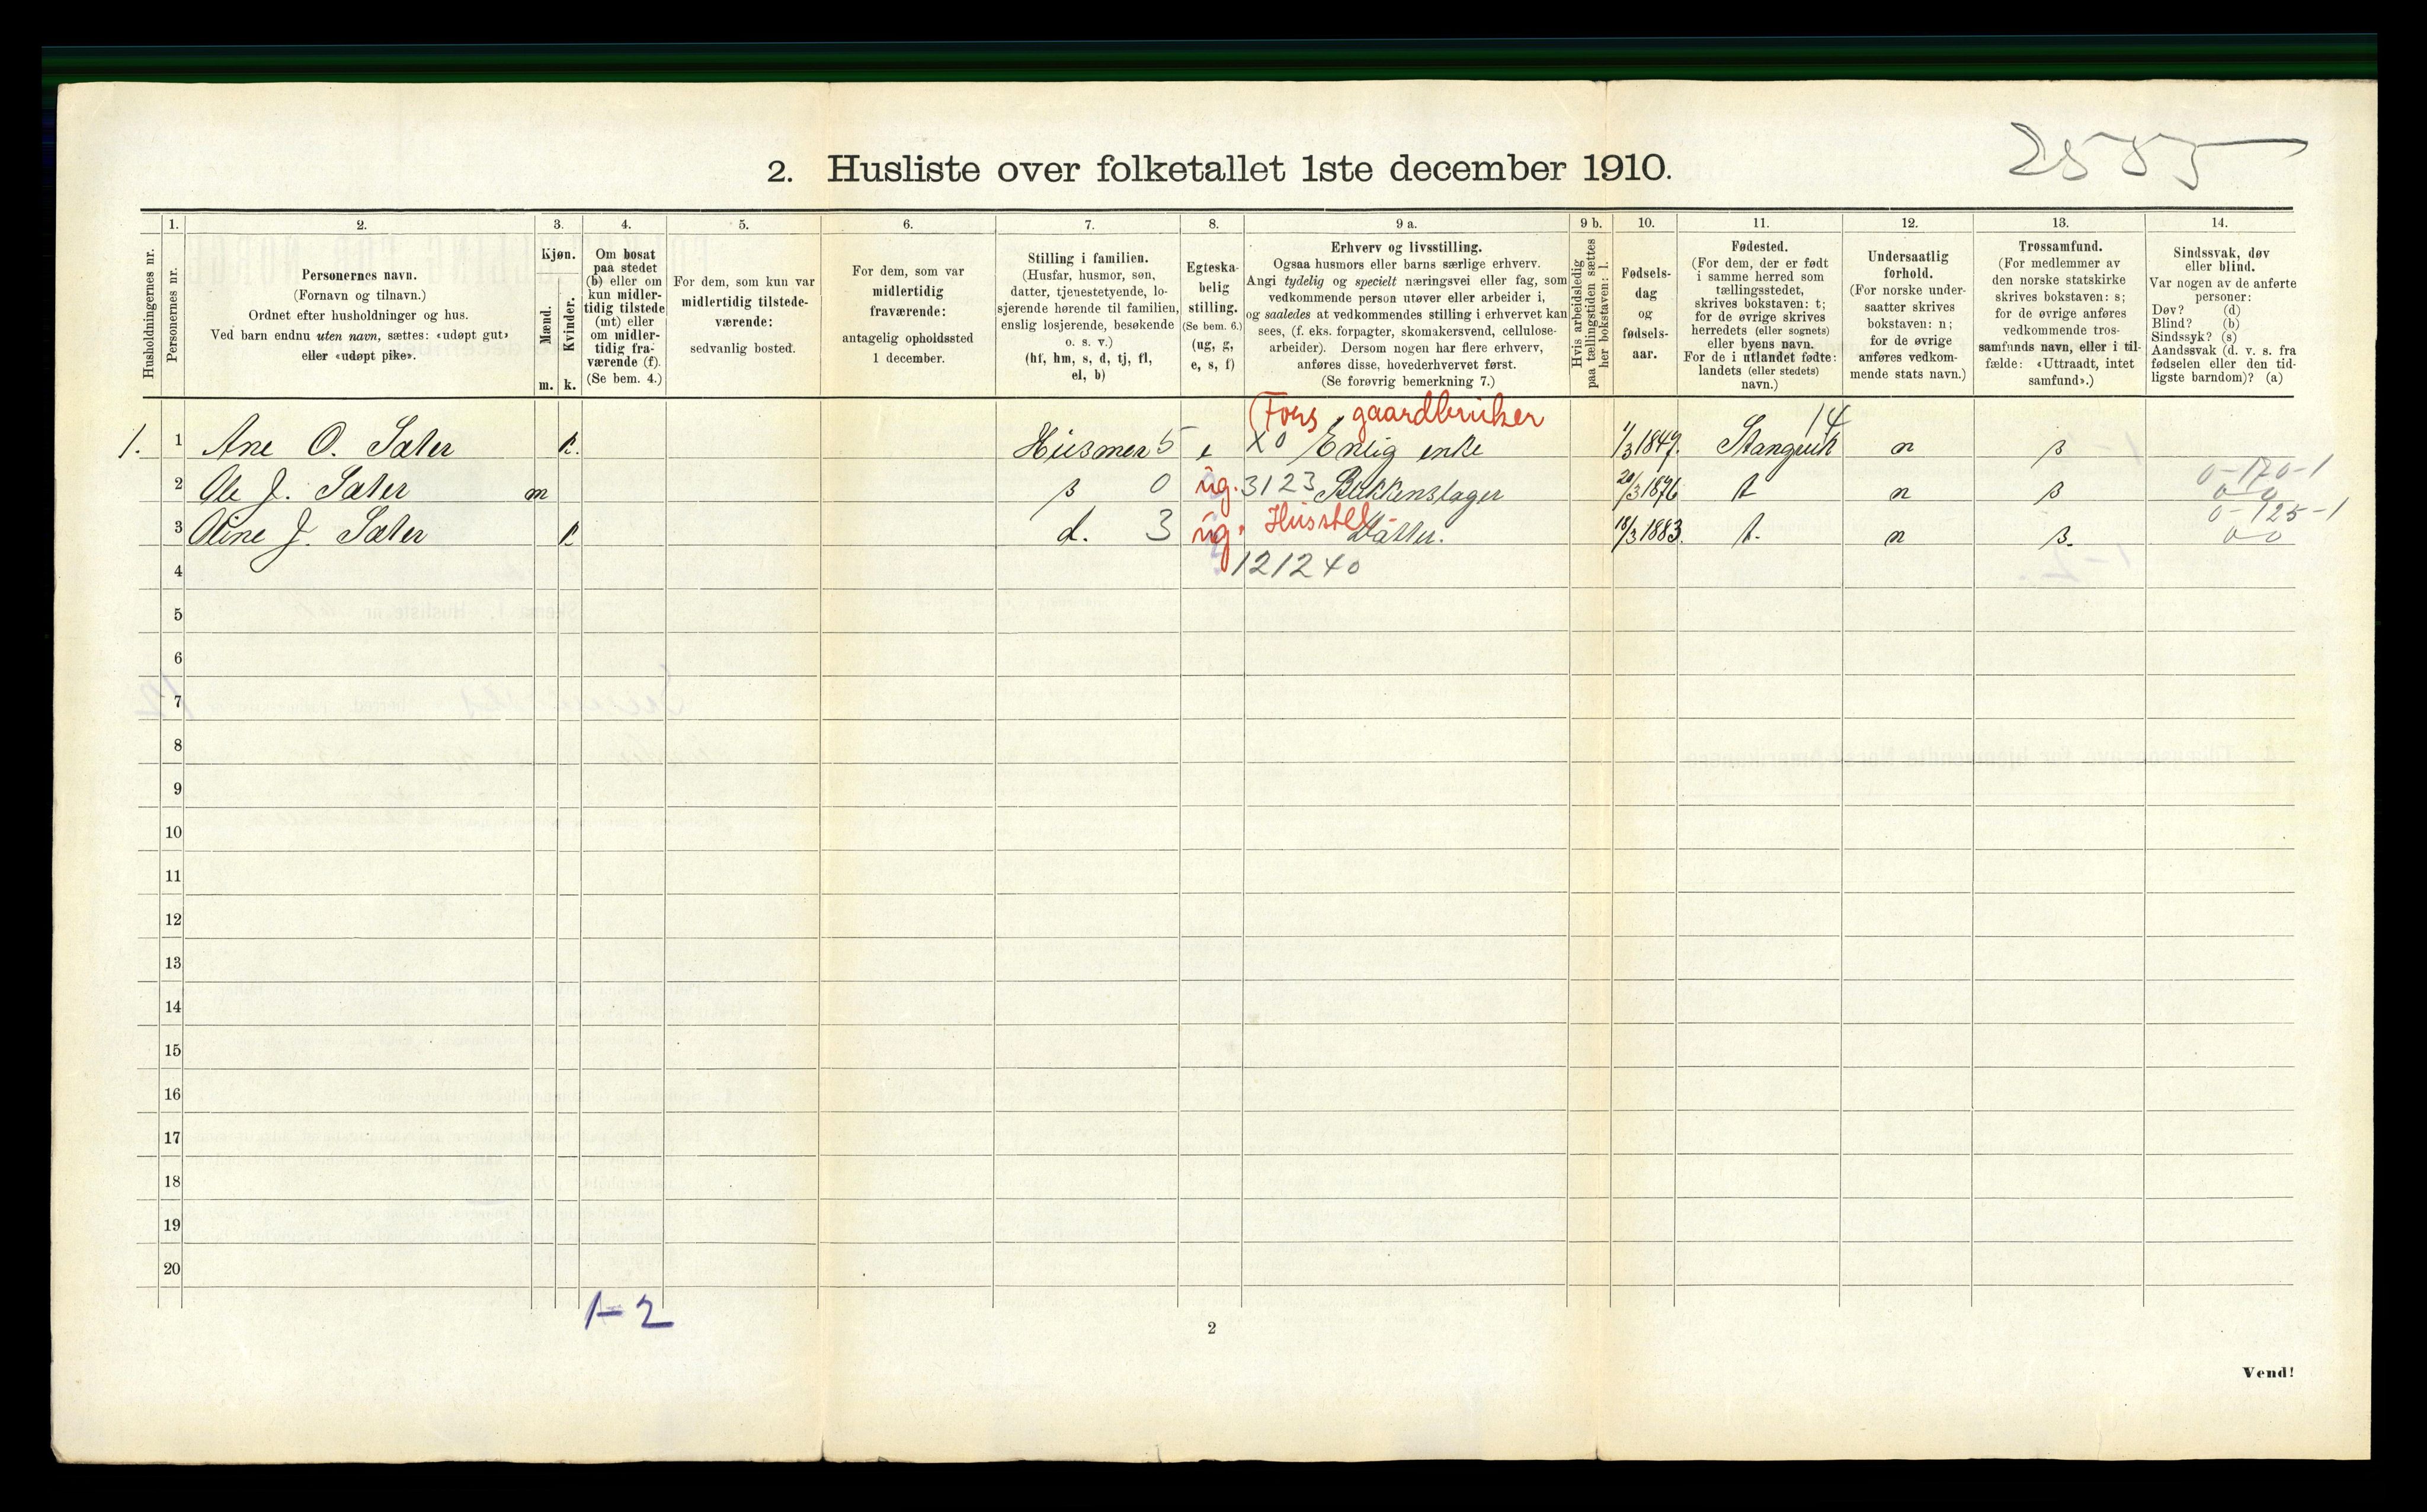 2. Husliste over folketallet 1ste december 1910.
1. 2. 3. 4. 5. 6. 7. 8. 9 a. 9 b. 10. 11. 12. 13. 14.
Husholdningernes nr.
Personernes nr.
Personernes navn.
(Fornavn og tilnavn.)
Ordnet efter husholdninger og hus.
Ved barn endnu uten navn, sættes: «udøpt gut»
eller «udøpt pike».
Kjøn.
Mænd.
Kvinder.
m. k.
Om bosat
paa stedet
(b) eller om
kun midler-
tidig tilstede
(mt) eller
om midler-
tidig fra-
værende (f).
(Se bem. 4.)
For dem, som kun var
midlertidig tilstede-
værende:
sedvanlig bosted.
For dem, som var
midlertidig
fraværende:
antagelig opholdssted
1 december.
Stilling i familien.
(Husfar, husmor, søn,
datter, tjenestetyende, lo-
sjerende hørende til familien,
enslig losjerende, besøkende
o. s. v.)
(hf, hm, s, d, tj, fl,
el, b)
Egteska-
belig
stilling.
(Se bem. 6.)
(ug, g,
e, s, f)
Erhverv og livsstilling.
Ogsaa husmors eller barns særlige erhverv.
Angi tydelig og specielt næringsvei eller fag, som
vedkommende person utøver eller arbeider i,
og saaledes at vedkommendes stilling i erhvervet kan
sees, (f. eks. forpagter, skomakersvend, cellulose-
arbeider). Dersom nogen har flere erhverv,
anføres disse, hovederhvervet først.
(Se forøvrig bemerkning 7.)
Hvis arbeidsledig
paa tællingstiden sættes
her bokstaven: l.
Fødsels-
dag
og
fødsels-
aar.
Fødested.
(For dem, der er født
i samme herred som
tællingsstedet,
skrives bokstaven: t;
for de øvrige skrives
herredets (eller sognets)
eller byens navn.
For de i utlandet fødte:
landets (eller stedets)
navn.)
Undersaatlig
forhold.
(For norske under-
saatter skrives
bokstaven: n;
for de øvrige
anføres vedkom-
mende stats navn.)
Trossamfund.
(For medlemmer av
den norske statskirke
skrives bokstaven: s;
for de øvrige anføres
vedkommende tros-
samfunds navn, eller i til-
fælde: «Uttraadt, intet
samfund».)
Sindssvak, døv
eller blind.
Var nogen av de anførte
personer:
Døv? (d)
Blind? (b)
Sindssyk? (s)
Aandssvak (d. v. s. fra
fødselen eller den tid-
ligste barndom)? (a)
(Fors. gaardbruker 14
1. 1 Ane O. Sæter k. Husmor 5 e X0 Enlig enke 1/3 1847. Stangvik n s
0-170-1
2 Ole J. Sæter m s 0 ug. 3123 Bekkenslager 20/3 1876 t n s 0-0
Husstel- 0-125-1
3 Oline J. Sæter k d. 3 ug. Datter. 18/3 1883. t. n s. 0-0
4 121240
5
6
7
8
9
10
11
12
13
14
15
16
17
18
19
20
1-2
2
Vend!